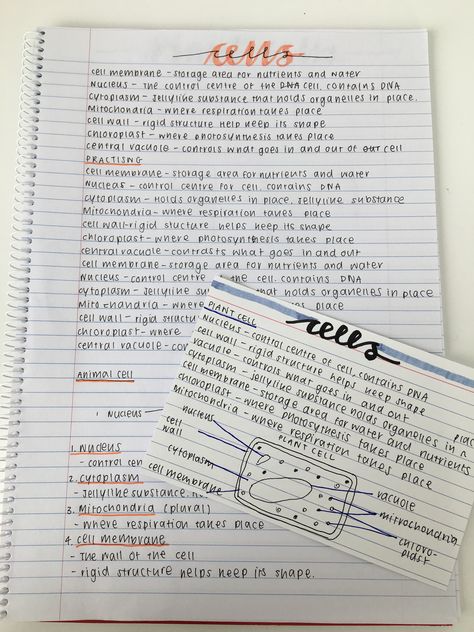 cells
cell membrane - storage area for nutrients and water
Nucleus - the control centre of the DNA cell. contains DNA
cytoplasm - Jellylike substance that holds organelles in place.
Mitochondria - where respiration takes place
cell wall - rigid structure help keep its shape
chloroplast - where photosynthesis takes place
central vacuole - controls what goes in and out of our cell
PRACTISING
cell membrane - storage area for nutrients and water
Nucleas - control centre for cell. contains DNA
cytoplasm - Holds organelles in place. Jellylike substance
Mitochondria - where respiration takes place
cell wall - rigid stucture helps keep its shape
chloroplast - where photosynthesis takes place
central vacuole - contrasts what goes in and out
cell membrane - storage area for nutrients and water
Nucleus - control centre the cell. contains DNA
cytoplasm - Jellylike su that holds organelles in place
Mitochondria - where place
cell wall - rigid structu
chloroplast - where
central vacuole - con
Animal cell
1. Nucleus
1. Nucleus
- control cen
2. cytoplasm
- Jellylike substance. H
3. Mitochondria (plural)
- where respiration takes place
4. cell membrane
- The wall of the cell
- rigid structure helps keep its shape.
cells
PLANT CELL
Nucleus - control centre of cell, contains DNA
cell wall - rigid structure helps keep shape
vacuole - controls what goes in and out
cytoplasm - jellylike substance holds organelles in place
cell membrane - storage area for water and nutrients
chloroplast - where photosynthesis takes place
Mitochondria - where respiration takes place
PLANT CELL
nucleus
cell wall
cytoplasm
cell membrane
vacuole
mitrochondria
chloroplast